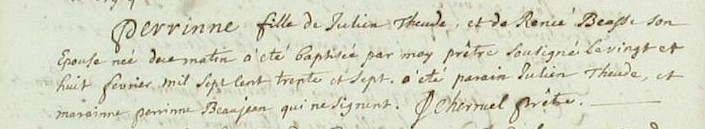 perrinne fille de Julien Theude, et de Renée Beasse son
Epouse née du matin a été baptisée par moy prêtre soussigné le vingt et
huit fevrier mil sept cent trente et sept. a été parain Julien Theude, et
maraine perrinne Beaujean qui ne signent. J chermel prêtre.